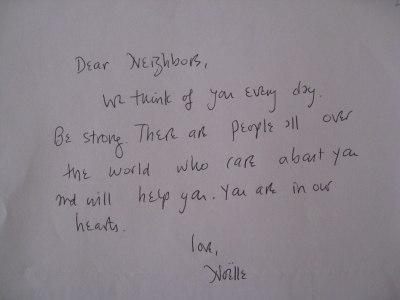 Dear Neighbors,
We think of you every day.
Be strong. There are people all over
the world who care about you
and will help you. You are in our
hearts.
love,
Noëlle